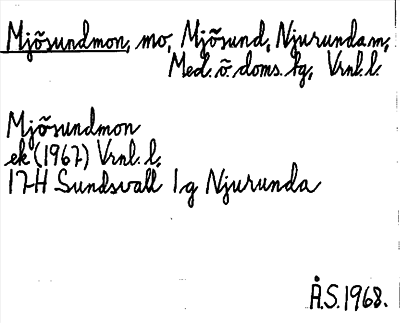 Mjõsundmon, mo, Mjõsund, Njurunda m,
Med. õ. doms. fg, Vrnl. l.
Mjõsundmon
ek (1967) Vrnl. l,
17H Sundsvall 1g Njurunda
Å.S. 1968.